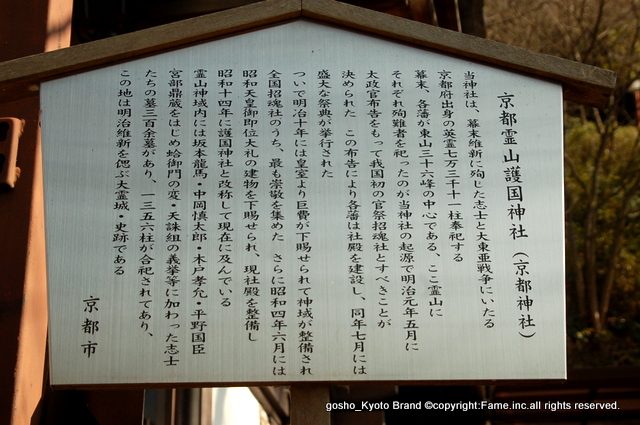 京都霊山護国神社（京都神社）
当神社は、幕末維新に殉じた志士と大東亜戦争にいたる
京都府出身の英霊七万三千十一柱奉祀する
幕末、各藩が東山三十六峰の中心である、ここ霊山に
それぞれ殉難者を祀ったのが当神社の起源で明治元年五月に
太政官布告をもって我国初の官祭招魂社とすべきことが
決められた　この布告により各藩は社殿を建設し、同年七月には
盛大な祭典が挙行された
ついで明治十年には皇室より巨費が下賜せられて神域が整備され
全国招魂社のうち、最も崇敬を集めた　さらに昭和四年六月には
昭和天皇御即位大礼の建物を下賜せられ、現社殿を整備し
昭和十四年に護国神社と改称して現在に及んでいる
霊山神域内には坂本龍馬・中岡慎太郎・木戸孝允・平野国臣
宮部鼎蔵をはじめ蛤御門の変・天誅組の義挙等に加わった志士
たちの墓三百余墓があり、一三五六柱が合祀されてあり、
この地は明治維新を偲ぶ大霊域・史跡である
京都市
gosho_Kyoto Brand ©copyright:Fame.inc.all rights reserved.